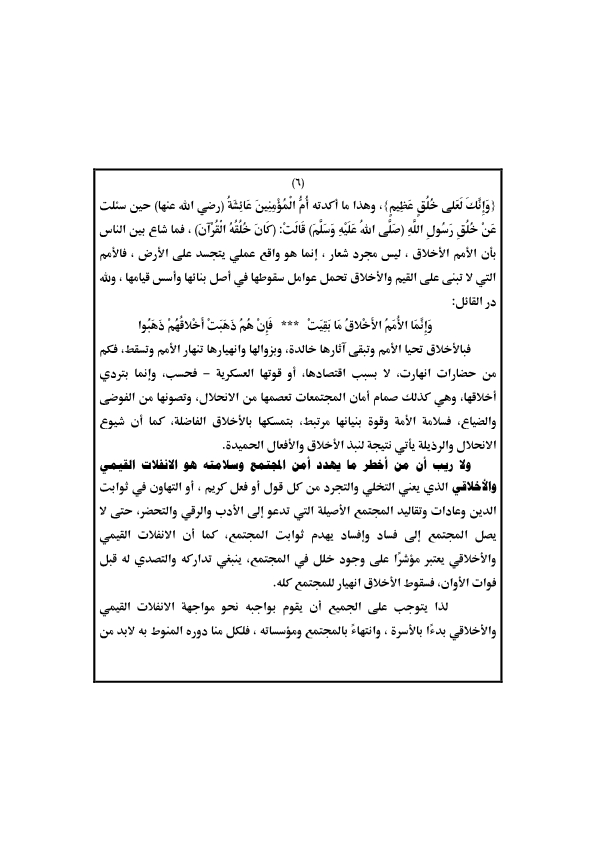 (٦)
{وَإِنَّكَ لَعَلى خُلُقٍ عَظِيمٍ}، وهذا ما أكدته أُمُّ الْمُؤْمِنِينَ عَائِشَةُ (رضي الله عنها) حين سئلت
عَنْ خُلُقِ رَسُولِ اللَّهِ (صَلَّى اللهُ عَلَيْهِ وَسَلَّمَ) قَالَتْ: (كَانَ خُلُقُهُ الْقُرْآنَ) ، فما شاع بين الناس
بأن الأمم الأخلاق ، ليس مجرد شعار ، إنما هو واقع عملي يتجسد على الأرض ، فالأمم
التي لا تبنى على القيم والأخلاق تحمل عوامل سقوطها في أصل بنائها وأسس قيامها ، ولله
در القائل:
وَإِنَّمَا الأُمَمُ الأَخْلاقُ مَا بَقِيَتْ *** فَإِنْ هُمُ ذَهَبَتْ أَخْلاقُهُمْ ذَهَبُوا
فبالأخلاق تحيا الأمم وتبقى آثارها خالدة، وبزوالها وانهيارها تنهار الأمم وتسقط، فكم
من حضارات انهارت، لا بسبب اقتصادها، أو قوتها العسكرية – فحسب، وإنما بتردي
أخلاقها، وهي كذلك صمام أمان المجتمعات تعصمها من الانحلال، وتصونها من الفوضى
والضياع، فسلامة الأمة وقوة بنيانها مرتبط، بتمسكها بالأخلاق الفاضلة، كما أن شيوع
الانحلال والرذيلة يأتي نتيجة لنبذ الأخلاق والأفعال الحميدة.
ولا ريب أن من أخطر ما يهدد أمن المجتمع وسلامته هو الانفلات القيمي
والأخلاقي الذي يعني التخلي والتجرد من كل قول أو فعل كريم ، أو التهاون في ثوابت
الدين وعادات وتقاليد المجتمع الأصيلة التي تدعو إلى الأدب والرقي والتحضر، حتى لا
يصل المجتمع إلى فساد وإفساد يهدم ثوابت المجتمع، كما أن الانفلات القيمي
والأخلاقي يعتبر مؤشرًا على وجود خلل في المجتمع، ينبغي تداركه والتصدي له قبل
فوات الأوان، فسقوط الأخلاق انهيار للمجتمع كله.
لذا يتوجب على الجميع أن يقوم بواجبه نحو مواجهة الانفلات القيمي
والأخلاقي بدءًا بالأسرة ، وانتهاءً بالمجتمع ومؤسساته ، فلكل منا دوره المنوط به لابد من